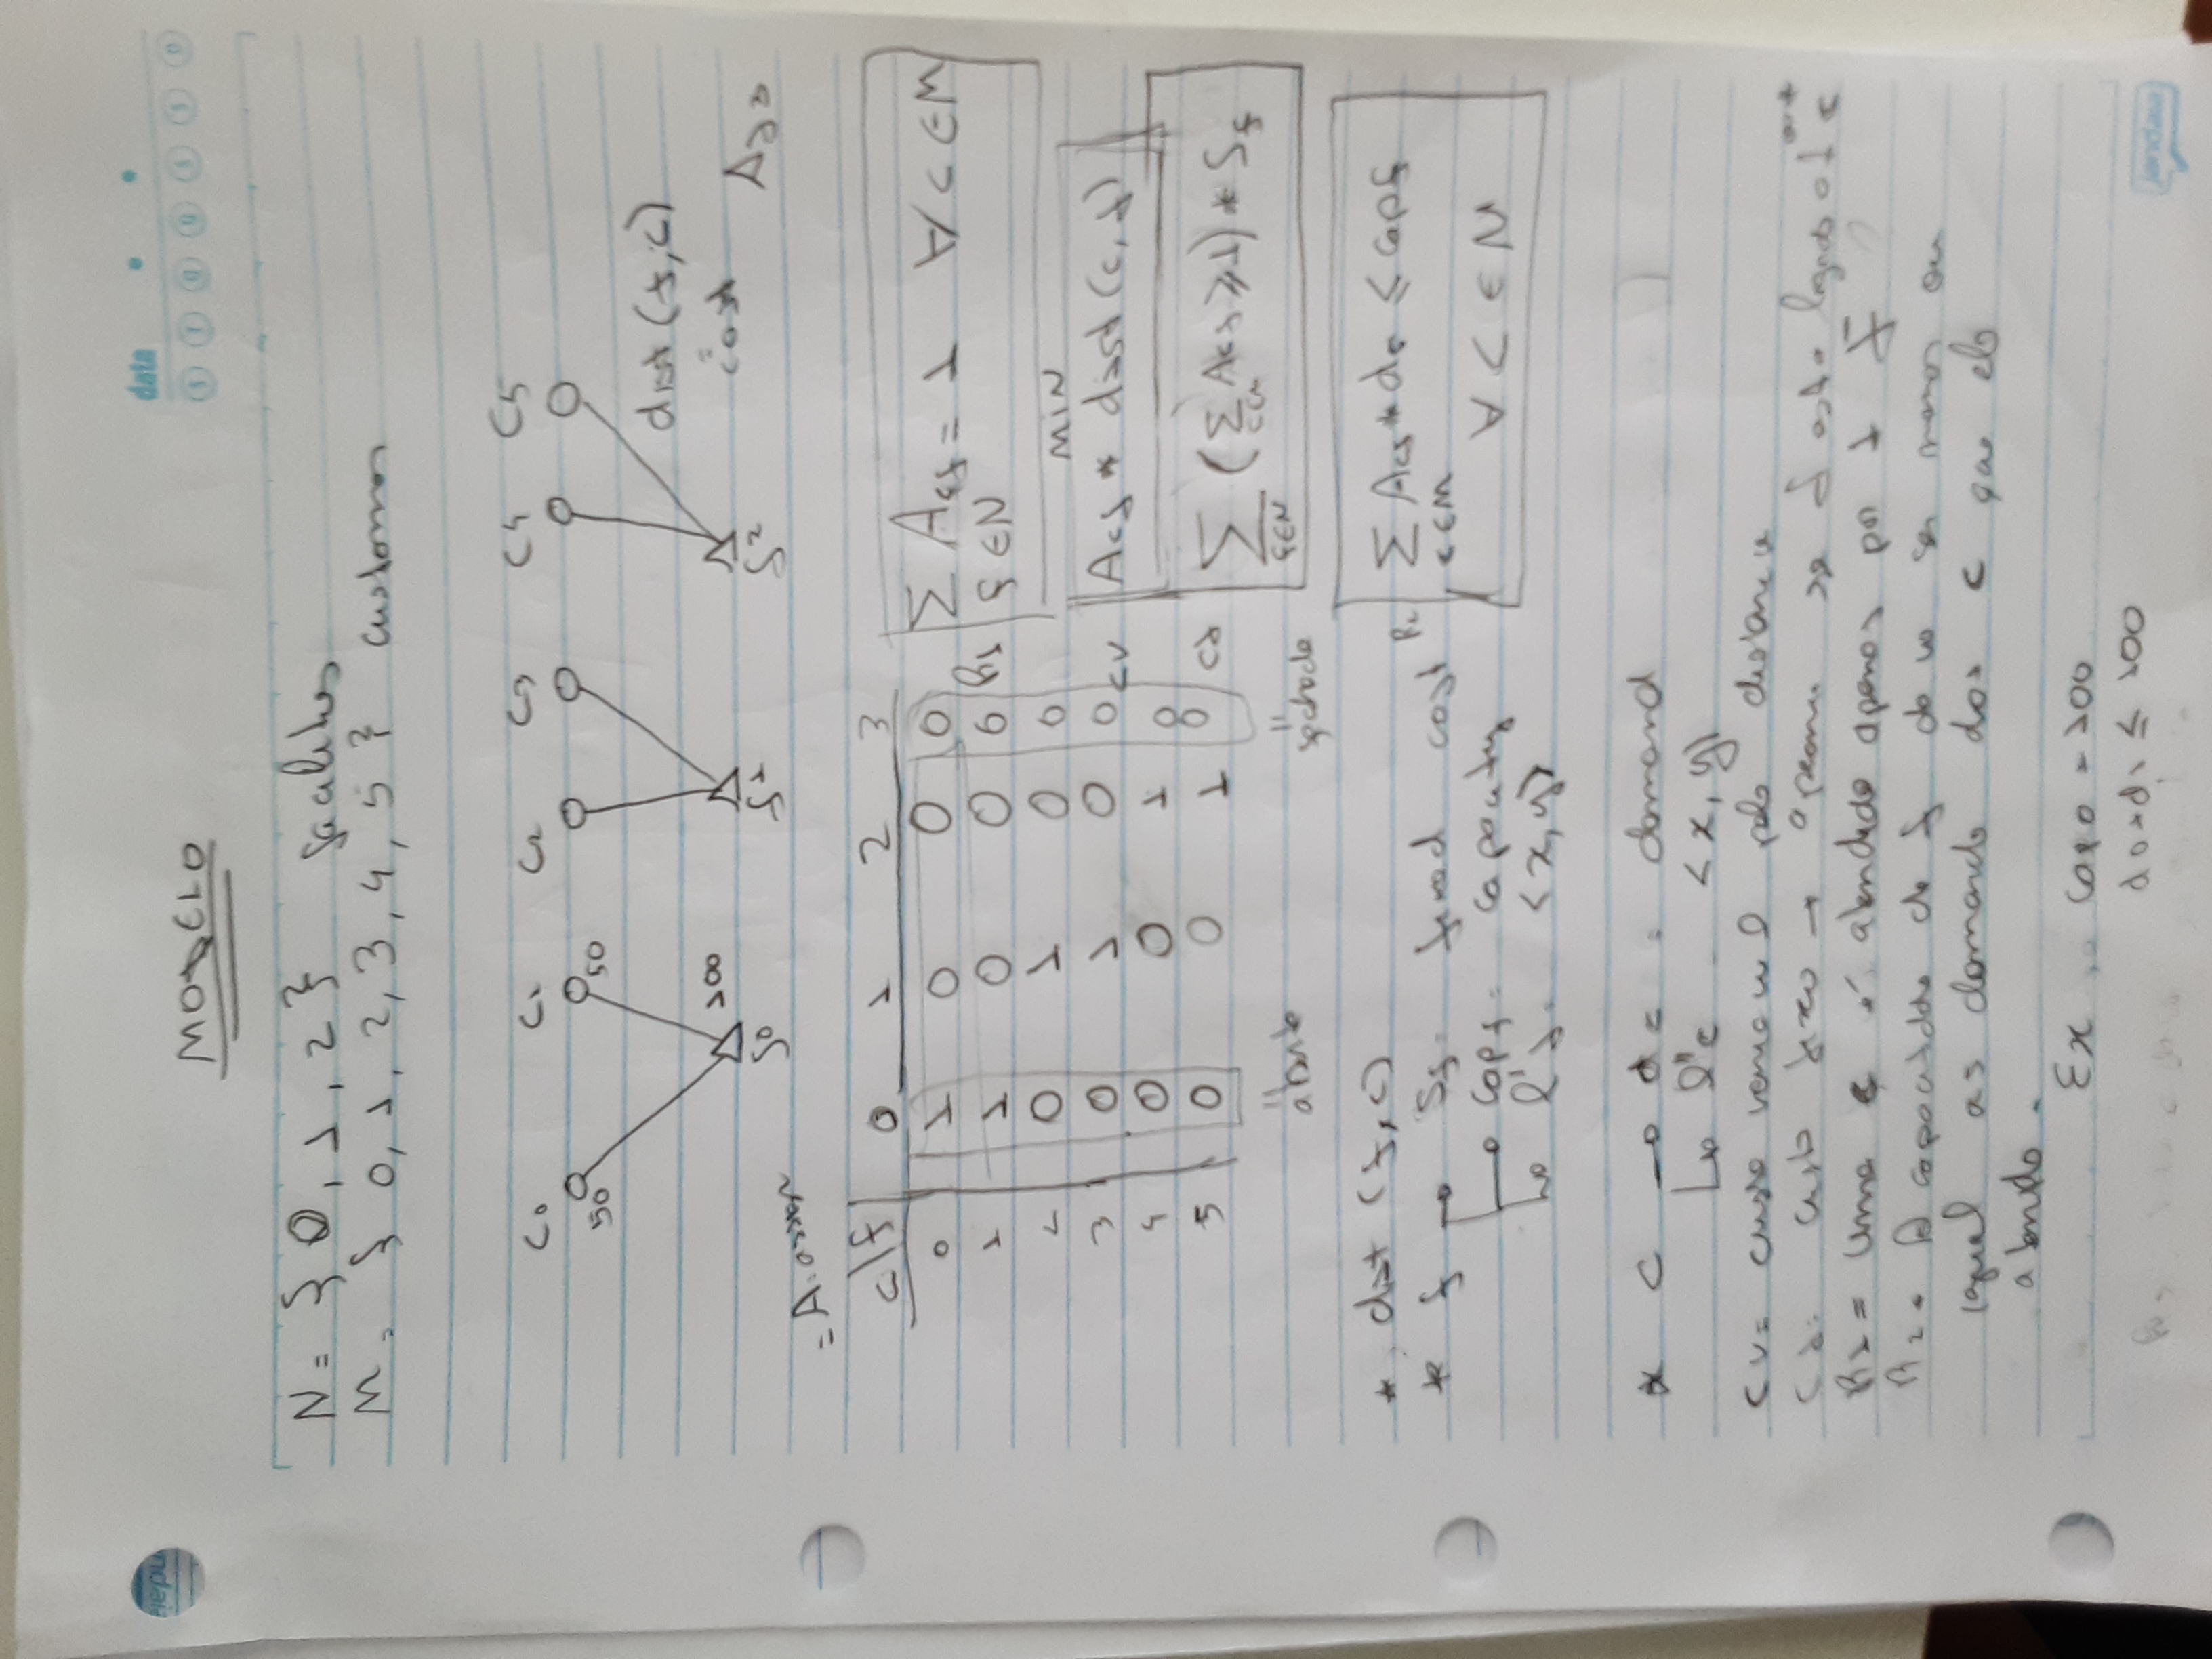 data
MODELO
N = { 0, 1, 2 } facilities
M = { 0, 1, 2, 3, 4, 5 } customers
C0 C1 C2 C3 C4 C5
50 50
dist (f,c)
= cost
100
f0 f1 f2
= A
c\f 0 1 2 3
0 1 0 0 0
1 1 0 0 0
2 0 1 0 0
3 0 1 0 0
4 0 0 1 0
5 0 0 1 0
R1 Σ Acf = 1 ∀ c ∈ M
f ∈ N
MIN
CV Acf * dist (c, f)
Cf Σ ( Σ Acf ≥ 1 ) * Sf
f∈N c∈M
" "
aberto fechado
* dist (f, c)
* f → Sf = fixed cost
→ capf = capacity
→ l'f = <x, y>
R2 Σ Acf * dc ≤ capf
c ∈ M
∀ c ∈ N
* c → dc = demand
→ l"c = <x, y>
CV = custo variavel pela distancia
Cf = custo fixo → apenas se f esta ligado a 1 c
R1 = Uma c é atendida apenas por 1 f
R2 = A capacidade de f deve ser menor ou
igual as demanda dos c que ela
atende.
Ex cap0 = 100
d0 + d1 ≤ 100
jandaia